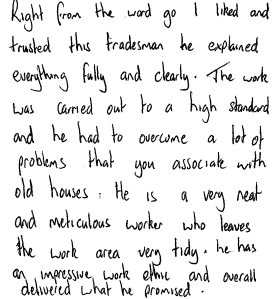 Right from the word go I liked and
trusted this tradesman he explained
everything fully and clearly. The work
was carried out to a high standard
and he had to overcome a lot of
problems that you associate with
old houses. He is a very neat
and meticulous worker who leaves
the work area very tidy. he has
an impressive work ethic and overall
delivered what he promised.